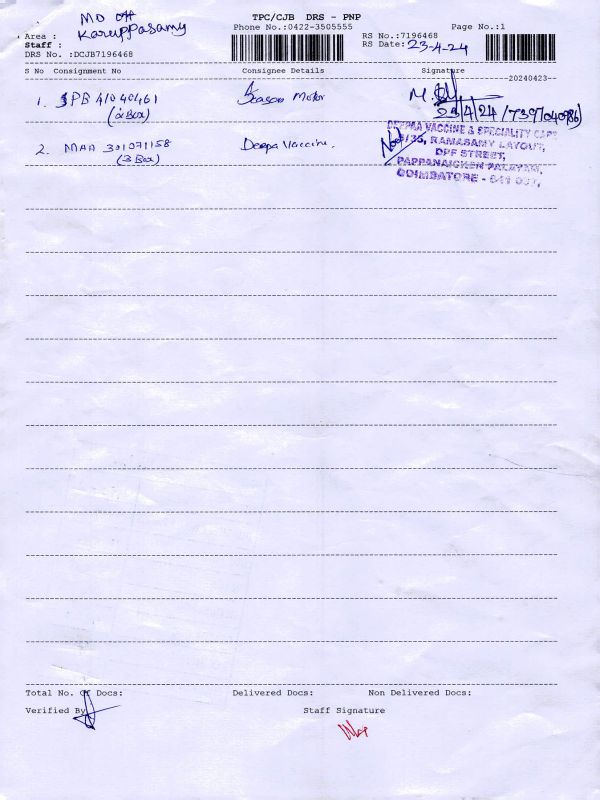 TPC/CJB DRS - PNP
MD Off
Area : Karuppasamy
Phone No.:0422-3505555
Page No.:1
Staff :
RS No.:7196468
DRS No. :DCJB7196468
RS Date: 23-4-24
S No Consignment No Consignee Details Signature
--20240423--
1. SPB 41040461 Season Motor M.
(2 Box) 23/4/24/
2. MAA 301071158 Deepa Vaccine.
(3 Box)
DEEPAA VACCINE & SPECIALITY CARE
RAMASAMY LAYOUT,
DPF STREET,
PAPPANAICKEN PALAYAM,
COIMBATORE - 641 037,
Total No. Of Docs: Delivered Docs: Non Delivered Docs:
Verified By Staff Signature